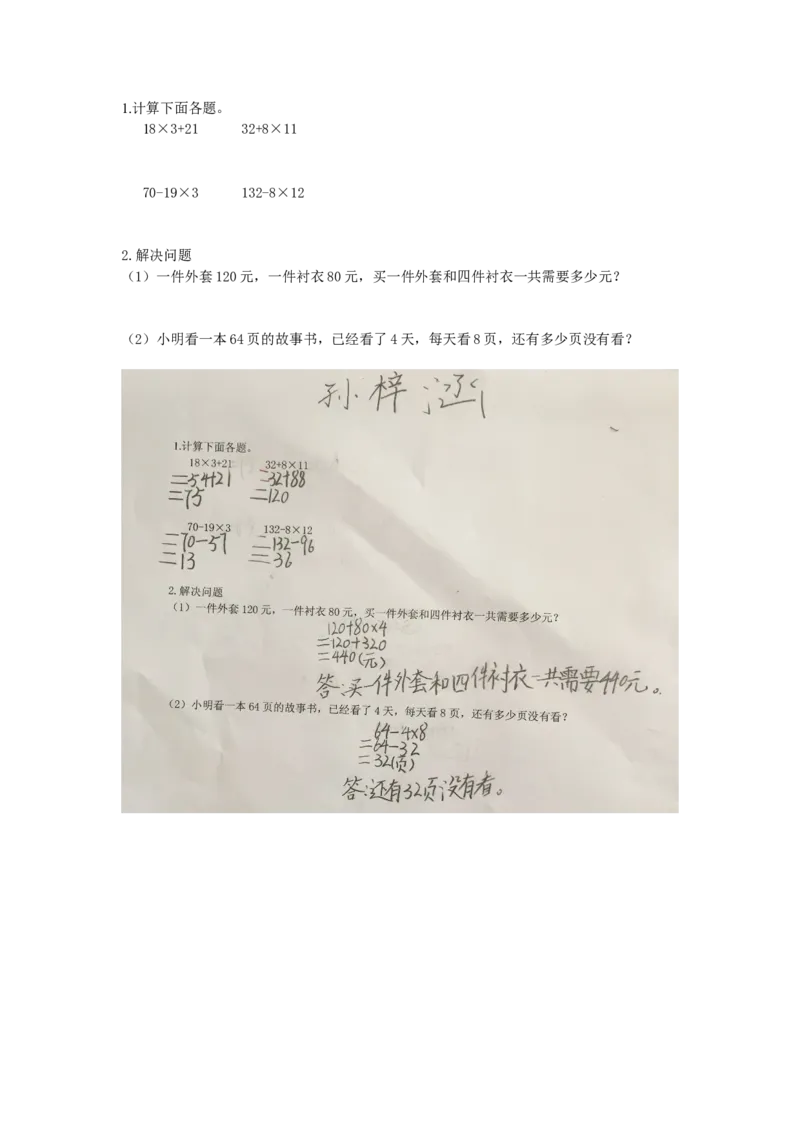 1.计算下面各题。
18×3+21 32+8×11
70-19×3 132-8×12
2.解决问题
（1）一件外套120元，一件衬衣80元，买一件外套和四件衬衣一共需要多少元？
（2）小明看一本64页的故事书，已经看了4天，每天看8页，还有多少页没有看？
孙梓涵
1.计算下面各题。
18×3+21 32+8×11
=54+21 =32+88
=75 =120
70-19×3 132-8×12
=70-57 =132-96
=13 =36
2.解决问题
（1）一件外套120元，一件衬衣80元，买一件外套和四件衬衣一共需要多少元？
120+80×4
=120+320
=440(元)
答:买一件外套和四件衬衣一共需要440元。
（2）小明看一本64页的故事书，已经看了4天，每天看8页，还有多少页没有看？
64-4×8
=64-32
=32(页)
答:还有32页没有看。